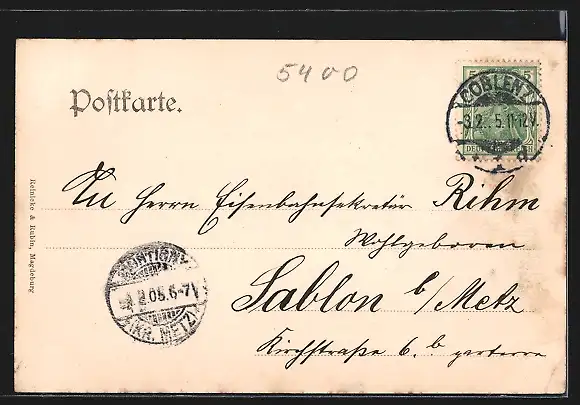 5400
Postkarte.
5 5
COBLENZ
-3.2. 5.11-12V.
DEUTSCHES REICH
An Herrn Eisenbahnsekretär Rihm
Wohlgeboren
Sablon b/Metz
Kirchstraße 6. b parterre
MONTIGNY
2.05.6-7
(KR. METZ)
Reinicke & Rubin, Magdeburg